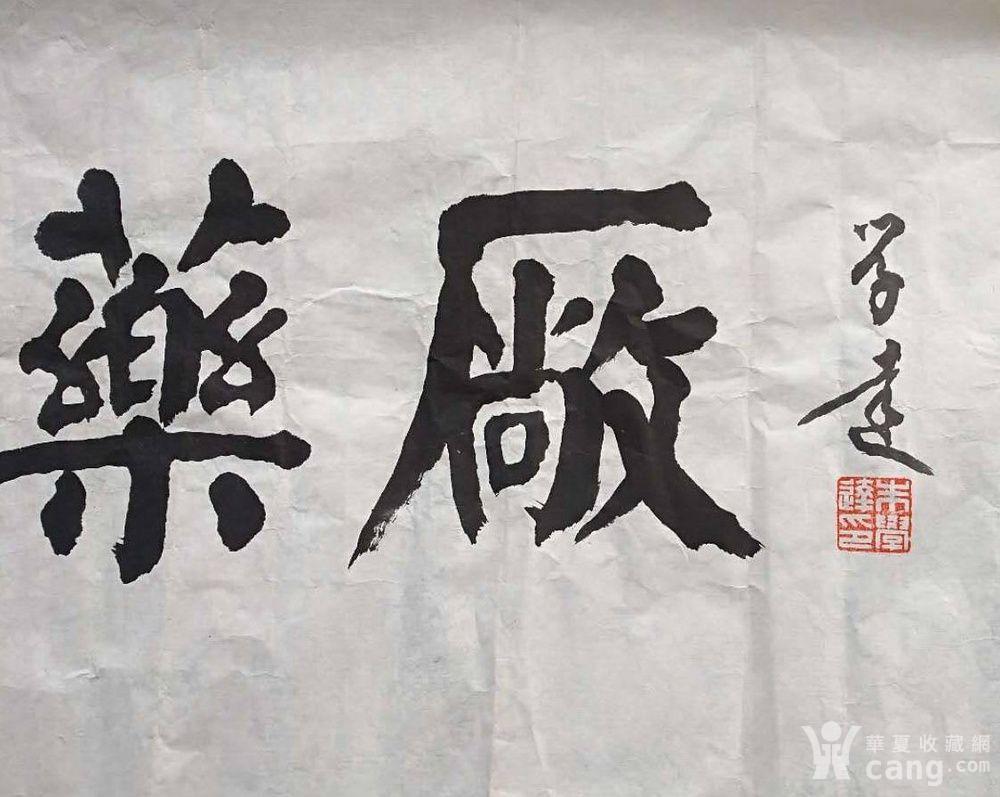 藥廠
学達
朱學達印
華夏收藏網
cang.com